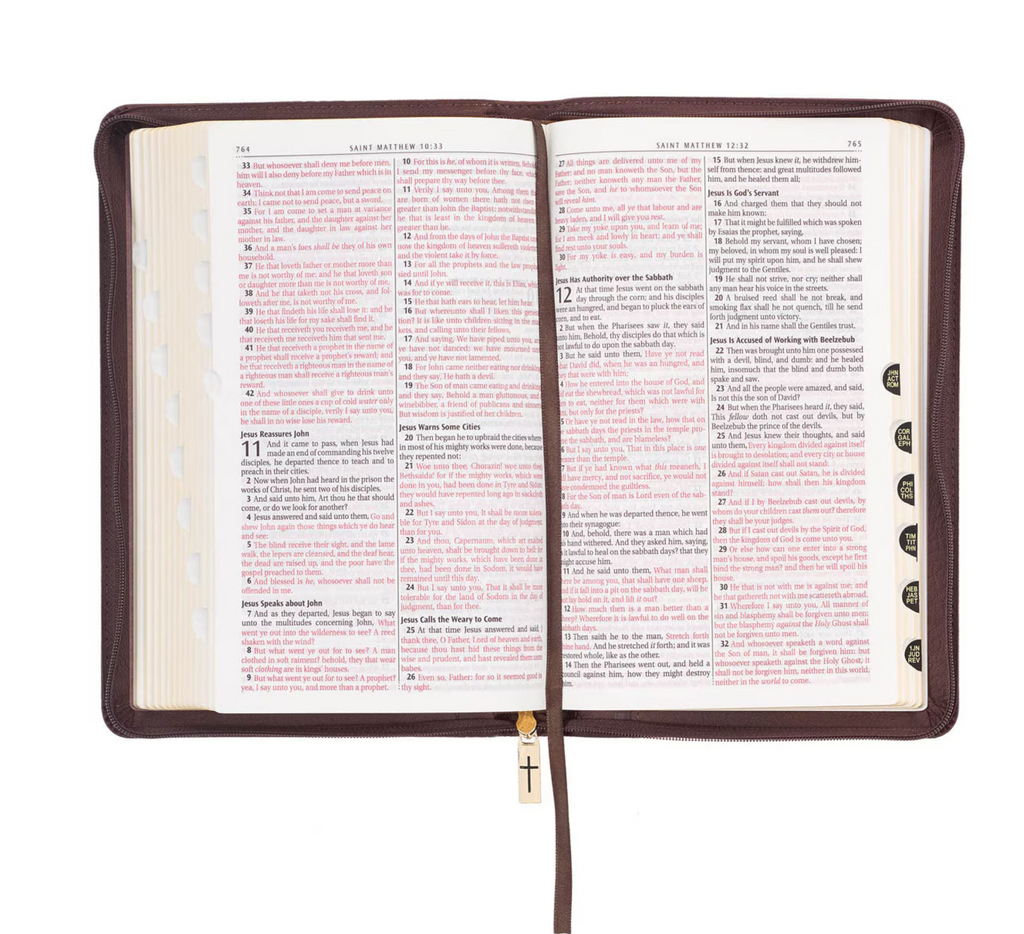 764
SAINT MATTHEW 10:33
33 But whosoever shall deny me before men,
him will I also deny before my Father which is in
heaven.
34 Think not that I am come to send peace on
earth: I came not to send peace, but a sword.
35 For I am come to set a man at variance
against his father, and the daughter against her
mother, and the daughter in law against her
mother in law.
36 And a man's foes shall be they of his own
household.
37 He that loveth father or mother more than
me is not worthy of me: and he that loveth son
or daughter more than me is not worthy of me.
38 And he that taketh not his cross, and fol-
loweth after me, is not worthy of me.
39 He that findeth his life shall lose it: and he
that loseth his life for my sake shall find it.
40 He that receiveth you receiveth me, and he
that receiveth me receiveth him that sent me.
41 He that receiveth a prophet in the name of
a prophet shall receive a prophet's reward; and
he that receiveth a righteous man in the name of
a righteous man shall receive a righteous man's
reward.
42 And whosoever shall give to drink unto
one of these little ones a cup of cold water only
in the name of a disciple, verily I say unto you,
he shall in no wise lose his reward.
Jesus Reassures John
11 And it came to pass, when Jesus had
made an end of commanding his twelve
disciples, he departed thence to teach and to
preach in their cities.
2 Now when John had heard in the prison the
works of Christ, he sent two of his disciples,
3 And said unto him, Art thou he that should
come, or do we look for another?
4 Jesus answered and said unto them, Go and
shew John again those things which ye do hear
and see:
5 The blind receive their sight, and the lame
walk, the lepers are cleansed, and the deaf hear,
the dead are raised up, and the poor have the
gospel preached to them.
6 And blessed is he, whosoever shall not be
offended in me.
Jesus Speaks about John
7 And as they departed, Jesus began to say
unto the multitudes concerning John, What
went ye out into the wilderness to see? A reed
shaken with the wind?
8 But what went ye out for to see? A man
clothed in soft raiment? behold, they that wear
soft clothing are in kings' houses.
9 But what went ye out for to see? A prophet?
yea, I say unto you, and more than a prophet.
10 For this is he, of whom it is written, Behold,
I send my messenger before thy face, which
shall prepare thy way before thee.
11 Verily I say unto you, Among them
are born of women there hath not
greater than John the Baptist: notwithstanding
he that is least in the kingdom of heaven
greater than he.
12 And from the days of John the Baptist
now the kingdom of heaven suffereth violence,
and the violent take it by force.
13 For all the prophets and the law prophe-
sied until John.
14 And if ye will receive it, this is Elias, which
was for to come.
15 He that hath ears to hear, let him hear.
16 But whereunto shall I liken this gene-
tion? It is like unto children sitting in the mar-
kets, and calling unto their fellows,
17 And saying, We have piped unto you, and
ye have not danced; we have mourned unto
you, and ye have not lamented.
18 For John came neither eating nor drinking,
and they say, He hath a devil.
19 The Son of man came eating and drinking,
and they say, Behold a man gluttonous, and
winebibber, a friend of publicans and sinners.
But wisdom is justified of her children.
Jesus Warns Some Cities
20 Then began he to upbraid the cities where-
in most of his mighty works were done, because
they repented not:
21 Woe unto thee, Chorazin! woe unto thee,
Bethsaida! for if the mighty works, which were
done in you, had been done in Tyre and Sidon,
they would have repented long ago in sackcloth
and ashes.
22 But I say unto you, It shall be more tolera-
ble for Tyre and Sidon at the day of judgment,
than for you.
23 And thou, Capernaum, which art exalted
unto heaven, shalt be brought down to hell: for
if the mighty works, which have been done in
thee, had been done in Sodom, it would have
remained until this day.
24 But I say unto you, That it shall be more
tolerable for the land of Sodom in the day of
judgment, than for thee.
Jesus Calls the Weary to Come
25 At that time Jesus answered and said, I
thank thee, O Father, Lord of heaven and earth,
because thou hast hid these things from the
wise and prudent, and hast revealed them unto
babes.
26 Even so, Father: for so it seemed good in
thy sight.
SAINT MATTHEW 12:32
765
27 All things are delivered unto me of my
Father: and no man knoweth the Son, but the
Father; neither knoweth any man the Father,
save the Son, and he to whomsoever the Son
will reveal him.
28 Come unto me, all ye that labour and are
heavy laden, and I will give you rest.
29 Take my yoke upon you, and learn of me;
for I am meek and lowly in heart: and ye shall
find rest unto your souls.
30 For my yoke is easy, and my burden is
light.
Jesus Has Authority over the Sabbath
12 At that time Jesus went on the sabbath
day through the corn; and his disciples
were an hungred, and began to pluck the ears of
corn, and to eat.
2 But when the Pharisees saw it, they said
unto him, Behold, thy disciples do that which is
not lawful to do upon the sabbath day.
3 But he said unto them, Have ye not read
what David did, when he was an hungred, and
they that were with him;
4 How he entered into the house of God, and
did eat the shewbread, which was not lawful for
him to eat, neither for them which were with
him, but only for the priests?
5 Or have ye not read in the law, how that on
the sabbath days the priests in the temple pro-
fane the sabbath, and are blameless?
6 But I say unto you, That in this place is one
greater than the temple.
7 But if ye had known what this meaneth, I
will have mercy, and not sacrifice, ye would not
have condemned the guiltless.
8 For the Son of man is Lord even of the sab-
bath day.
9 And when he was departed thence, he went
into their synagogue:
10 And, behold, there was a man which had
his hand withered. And they asked him, saying,
Is it lawful to heal on the sabbath days? that they
might accuse him.
11 And he said unto them, What man shall
there be among you, that shall have one sheep,
and if it fall into a pit on the sabbath day, will he
not lay hold on it, and lift it out?
12 How much then is a man better than a
sheep? Wherefore it is lawful to do well on the
sabbath days.
13 Then saith he to the man, Stretch forth
thine hand. And he stretched it forth; and it was
restored whole, like as the other.
14 Then the Pharisees went out, and held a
council against him, how they might destroy
him.
15 But when Jesus knew it, he withdrew him-
self from thence: and great multitudes followed
him, and he healed them all;
Jesus Is God's Servant
16 And charged them that they should not
make him known:
17 That it might be fulfilled which was spoken
by Esaias the prophet, saying,
18 Behold my servant, whom I have chosen;
my beloved, in whom my soul is well pleased: I
will put my spirit upon him, and he shall shew
judgment to the Gentiles.
19 He shall not strive, nor cry; neither shall
any man hear his voice in the streets.
20 A bruised reed shall he not break, and
smoking flax shall he not quench, till he send
forth judgment unto victory.
21 And in his name shall the Gentiles trust.
Jesus Is Accused of Working with Beelzebub
22 Then was brought unto him one possessed
with a devil, blind, and dumb: and he healed
him, insomuch that the blind and dumb both
spake and saw.
23 And all the people were amazed, and said,
Is not this the son of David?
24 But when the Pharisees heard it, they said,
This fellow doth not cast out devils, but by
Beelzebub the prince of the devils.
25 And Jesus knew their thoughts, and said
unto them, Every kingdom divided against itself
is brought to desolation; and every city or house
divided against itself shall not stand:
26 And if Satan cast out Satan, he is divided
against himself; how shall then his kingdom
stand?
27 And if I by Beelzebub cast out devils, by
whom do your children cast them out? therefore
they shall be your judges.
28 But if I cast out devils by the Spirit of God,
then the kingdom of God is come unto you.
29 Or else how can one enter into a strong
man's house, and spoil his goods, except he first
bind the strong man? and then he will spoil his
house.
30 He that is not with me is against me; and
he that gathereth not with me scattereth abroad.
31 Wherefore I say unto you, All manner of
sin and blasphemy shall be forgiven unto men:
but the blasphemy against the Holy Ghost shall
not be forgiven unto men.
32 And whosoever speaketh a word against
the Son of man, it shall be forgiven him: but
whosoever speaketh against the Holy Ghost, it
shall not be forgiven him, neither in this world,
neither in the world to come.
JHN
ACT
ROM
COR
GAL
EPH
PHI
COL
THS
TIM
TIT
PHN
HEB
JAS
PET
1JN
JUD
REV